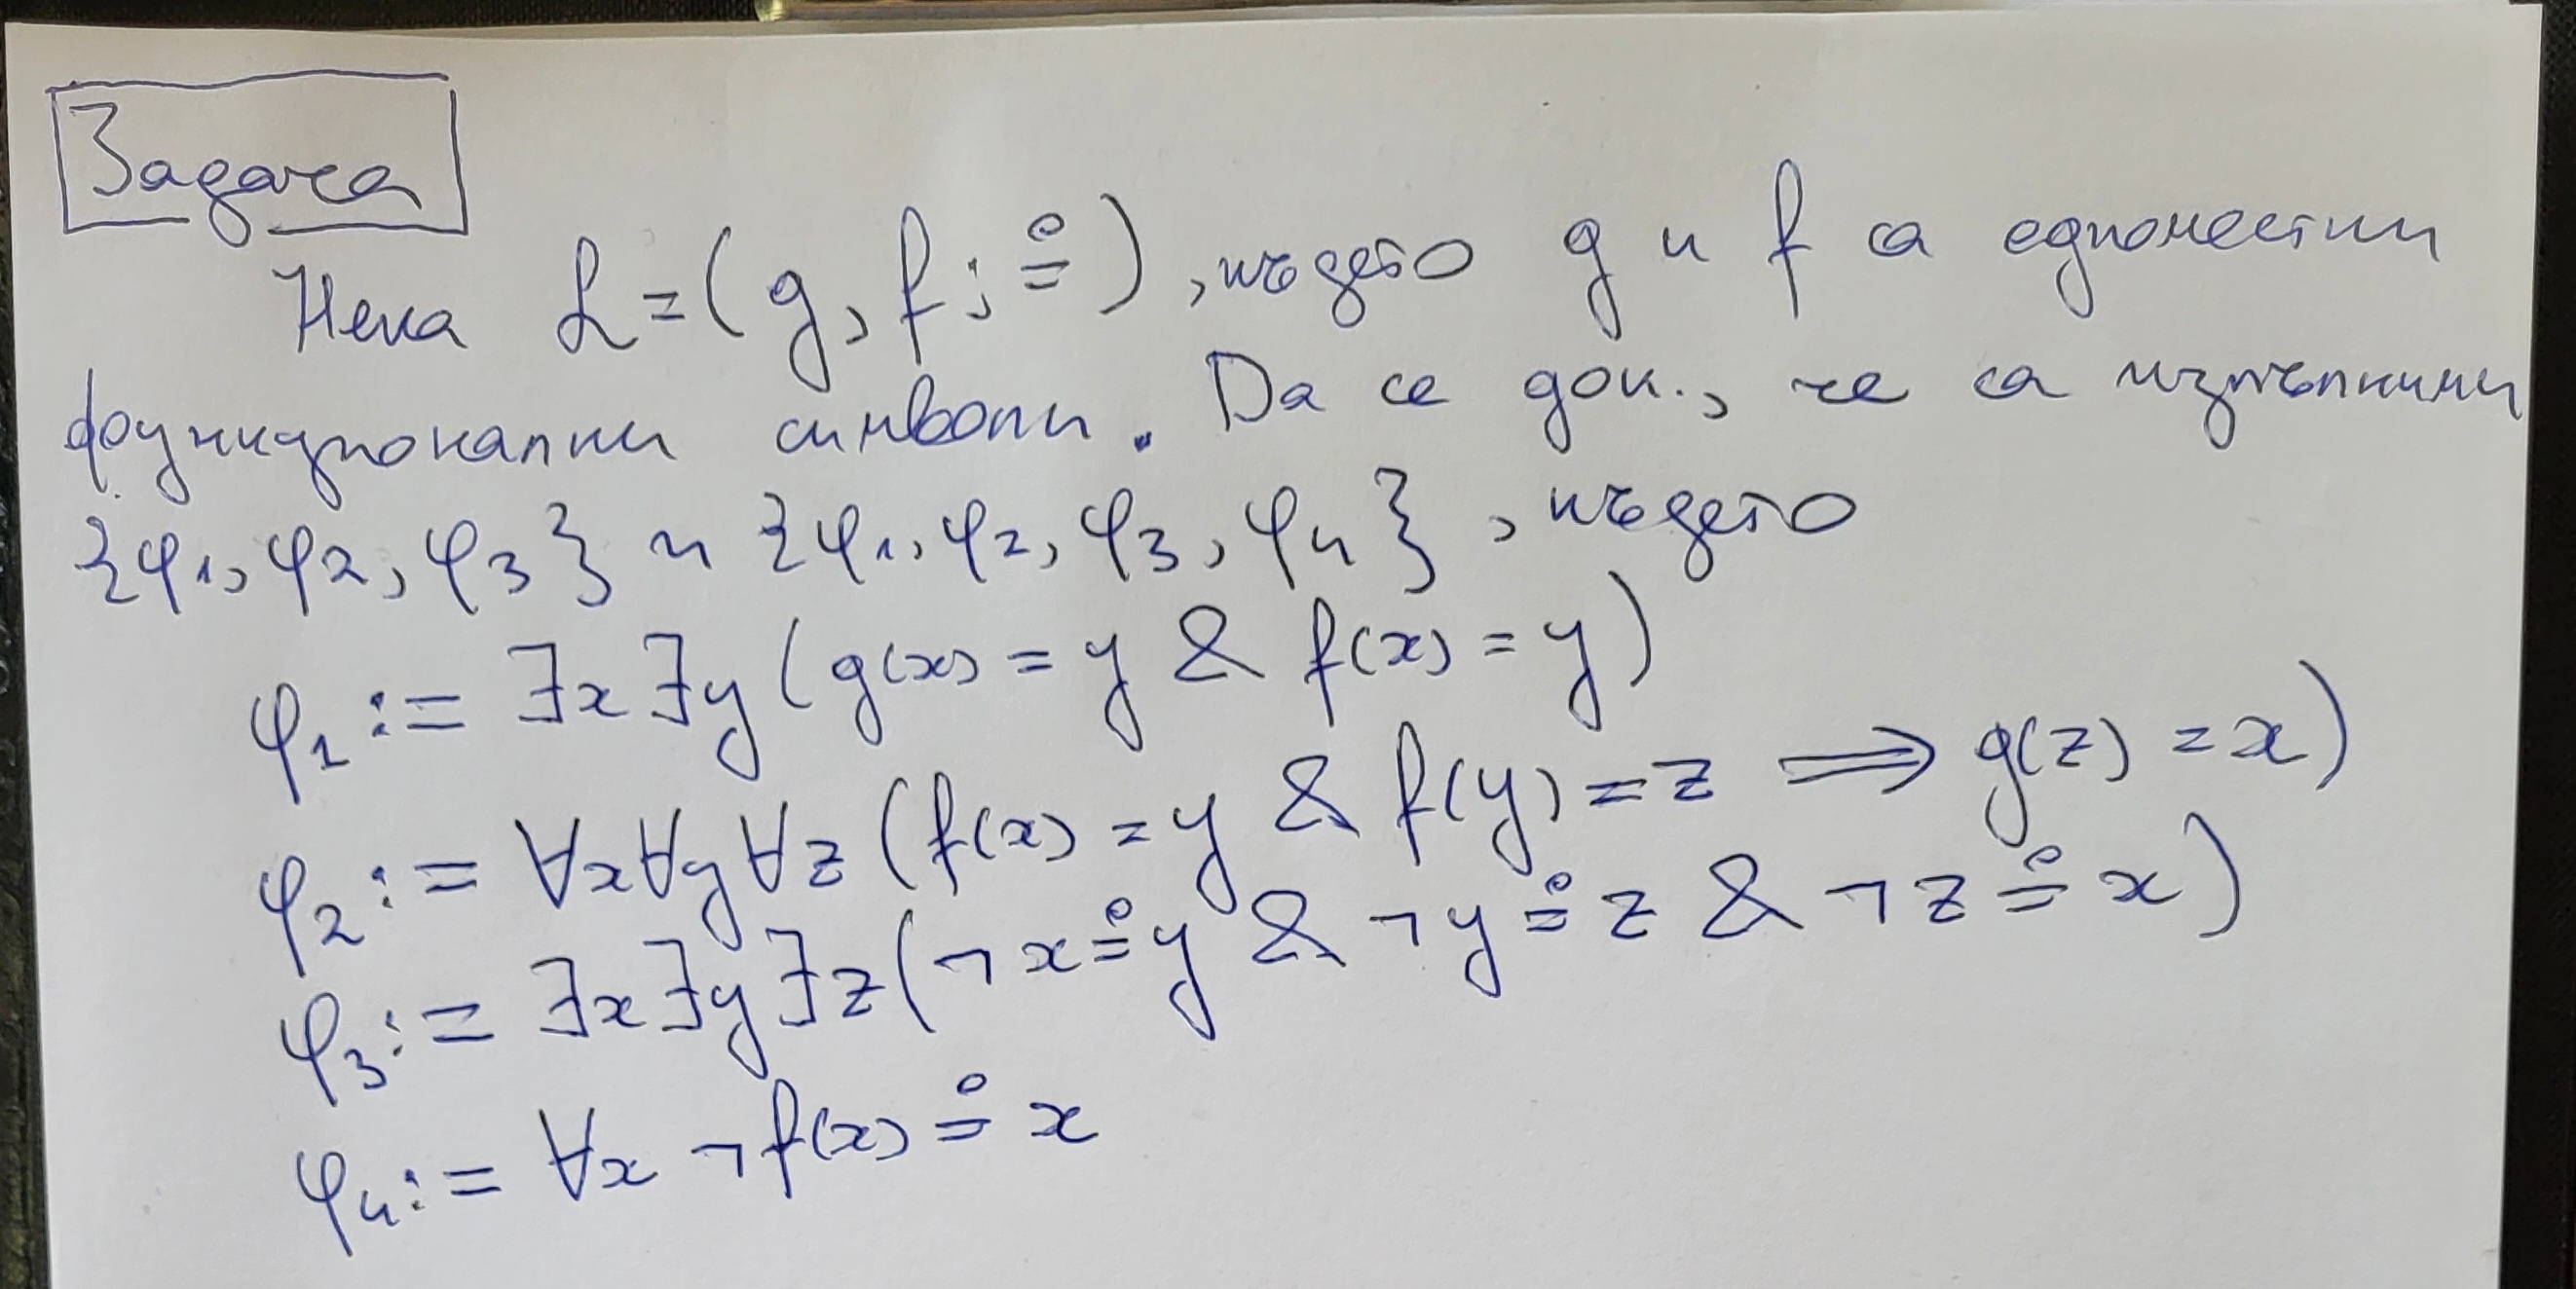 Задача
Нека L=(g, f; ≐), където g и f са едноместни
функционални символи. Да се док., че са изпълними
{φ₁, φ₂, φ₃} и {φ₁, φ₂, φ₃, φ₄}, където
φ₁ := ∃x∃y(g(x) = y & f(x) = y)
φ₂ := ∀x∀y∀z(f(x) = y & f(y) = z ⟹ g(z) = x)
φ₃ := ∃x∃y∃z(¬x≐y & ¬y≐z & ¬z≐x)
φ₄ := ∀x ¬f(x) ≐ x